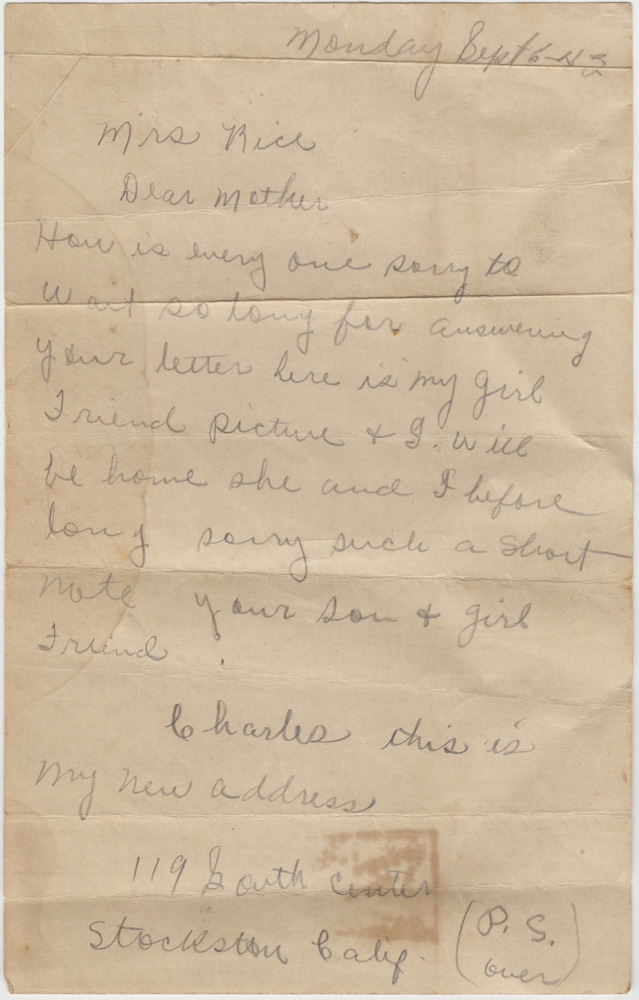 Monday Sept 6-43
Mrs Rice
Dear Mother
How is every one sorry to
Wait so long for answering
your letter here is my girl
Friend picture & I. Will
be home she and I before
long sorry such a short
note your son & girl
Friend
Charles this is
My new address
119 South Center
Stockston Calif.
(P. S.
over)